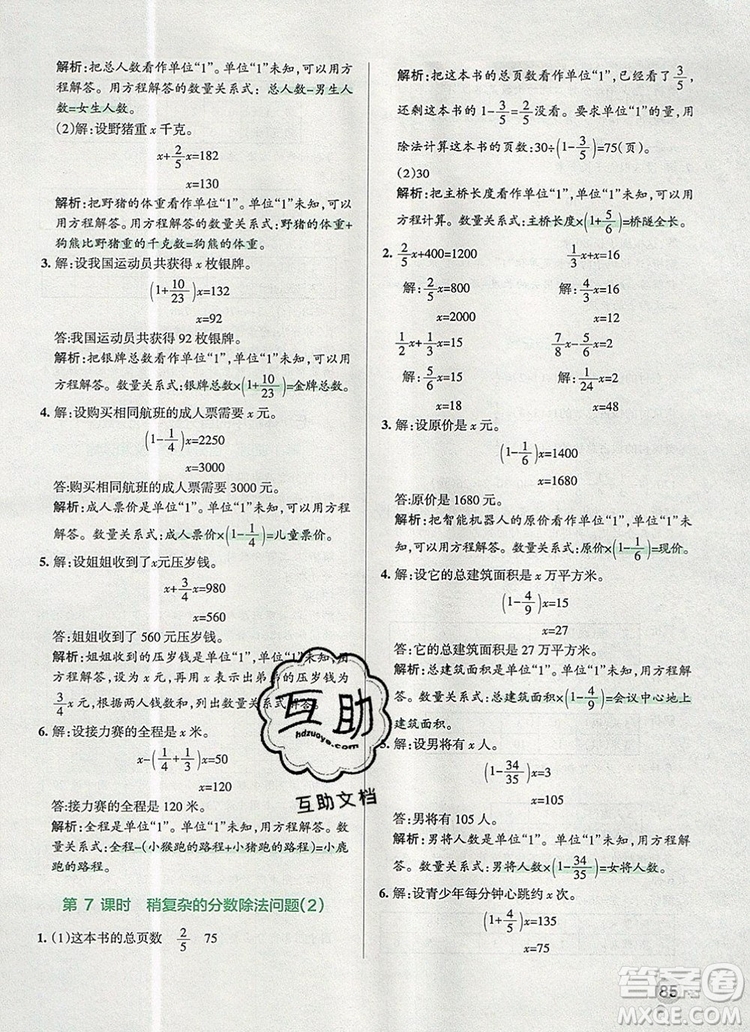 解析:把总人数看作单位“1”。单位“1”未知,可以用方
程解答。用方程解答的数量关系式:总人数-男生人
数=女生人数。
(2)解:设野猪重 x 千克。
x+2/5x=182
x=130
解析:把野猪的体重看作单位“1”,单位“1”未知,可以
用方程解答。用方程解答的数量关系式:野猪的体重+
狗熊比野猪重的千克数=狗熊的体重。
3. 解:设我国运动员共获得 x 枚银牌。
(1+10/23)x=132
x=92
答:我国运动员共获得 92 枚银牌。
解析:把银牌总数看作单位“1”,单位“1”未知,可以用
方程解答。数量关系式:银牌总数×(1+10/23)=金牌总数。
4. 解:设购买相同航班的成人票需要 x 元。
(1-1/4)x=2250
x=3000
答:购买相同航班的成人票需要 3000 元。
解析:成人票价是单位“1”。单位“1”未知,可以用方程
解答。数量关系式:成人票价×(1-1/4)=儿童票价。
5. 解:设姐姐收到了x元压岁钱。
x+3/4x=980
x=560
答:姐姐收到了 560 元压岁钱。
解析:姐姐收到的压岁钱是单位“1”。单位“1”未知,用
方程解答,设为 x 元,再用 x 表示出弟弟的压岁钱为
3/4x 元,根据两人钱数和,列出数量关系式解答。
6. 解:设接力赛的全程是 x 米。
x-(1/4+1/3)x=50
x=120
答:接力赛的全程是 120 米。
解析:全程是单位“1”。单位“1”未知,用方程解答。数
量关系式:全程-(小猴跑的路程+小猪跑的路程)=小鹿
跑的路程。
第 7 课时 稍复杂的分数除法问题(2)
1. (1)这本书的总页数 2/5 75
解析:把这本书的总页数看作单位“1”,已经看了3/5,
还剩这本书的 1-3/5=2/5没看。要求单位“1”,用
除法计算这本书的页数:30÷(1-3/5)=75(页)。
(2)30
解析:把主桥长度看作单位“1”。单位“1”未知,可以用
方程计算。数量关系式:主桥长度×(1+5/6)=桥隧全长。
2. 2/5x+400=1200 1/3x+x=16
解:2/5x=800 解:4/3x=16
x=2000 x=12
1/2x+1/3x=15 7/8x-5/6x=2
解:5/6x=15 解:1/24x=2
x=18 x=48
3. 解:设原价是 x 元。
(1-1/6)x=1400
x=1680
答:原价是 1680 元。
解析:把智能机器人的原价看作单位“1”,单位“1”未
知,可以用方程解答。数量关系式:原价×(1-1/6)=现价。
4. 解:设它的总建筑面积是 x 万平方米。
(1-4/9)x=15
x=27
答:它的总建筑面积是 27 万平方米。
解析:总建筑面积是单位“1”,单位“1”未知,用方程解
答。数量关系式:总建筑面积×(1-4/9)=会议中心地上
建筑面积。
5. 解:设男将有 x 人。
(1-34/35)x=3
x=105
答:男将有 105 人。
解析:男将人数是单位“1”。单位“1”未知,用方程解
答。数量关系式:男将人数×(1-34/35)=女将人数。
6. 解:设青少年每分钟心跳约 x 次。
(1+4/5)x=135
x=75
互助
hdzuoye.com
互助文档
85
答案圈
MXQE.COM